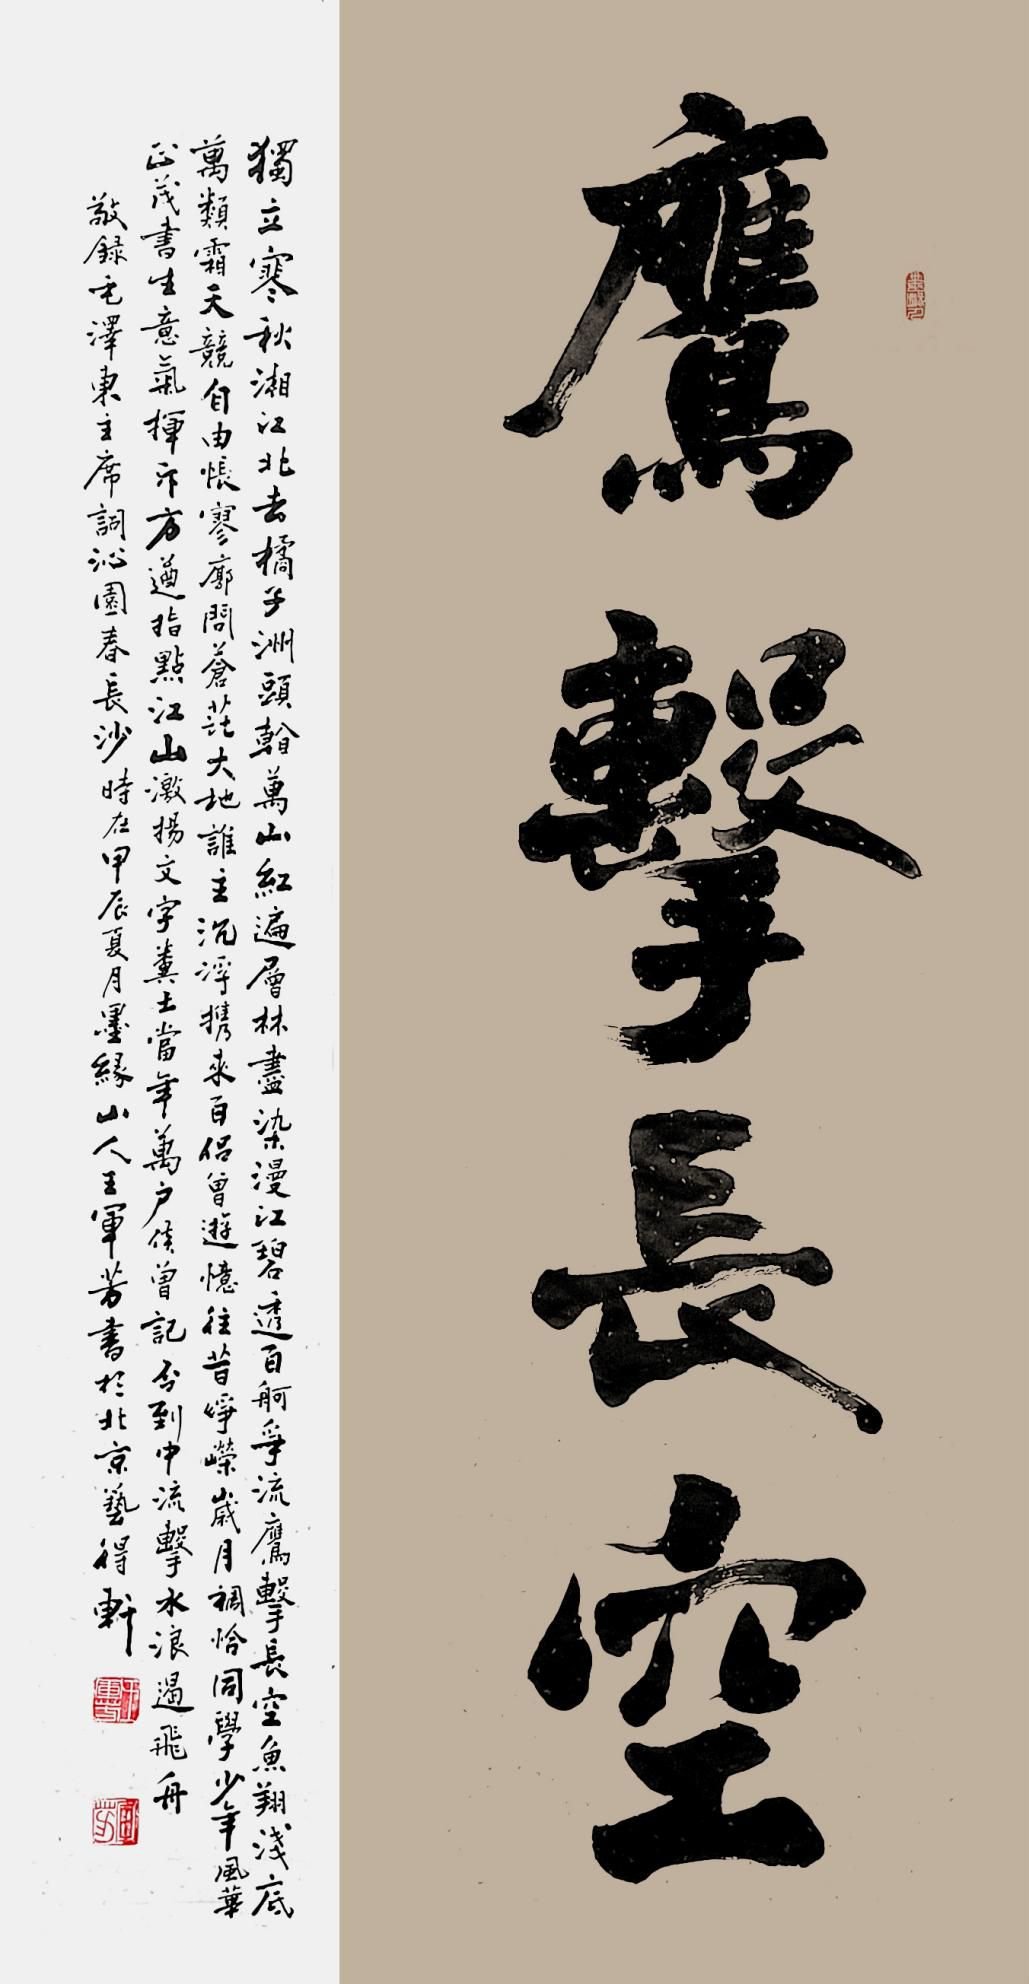 鷹擊長空
獨立寒秋湘江北去橘子洲頭看萬山紅遍層林盡染漫江碧透百舸爭流鷹擊長空魚翔淺底
萬類霜天競自由悵寥廓問蒼茫大地誰主沉浮携來百侶曾遊憶往昔崢嶸歲月稠恰同學少年風華
正茂書生意氣揮斥方遒指點江山激揚文字糞土當年萬户侯曾記否到中流擊水浪遏飛舟
敬録毛澤東主席詞沁園春長沙時在甲辰夏月墨緣山人王軍芳書於北京藝得軒